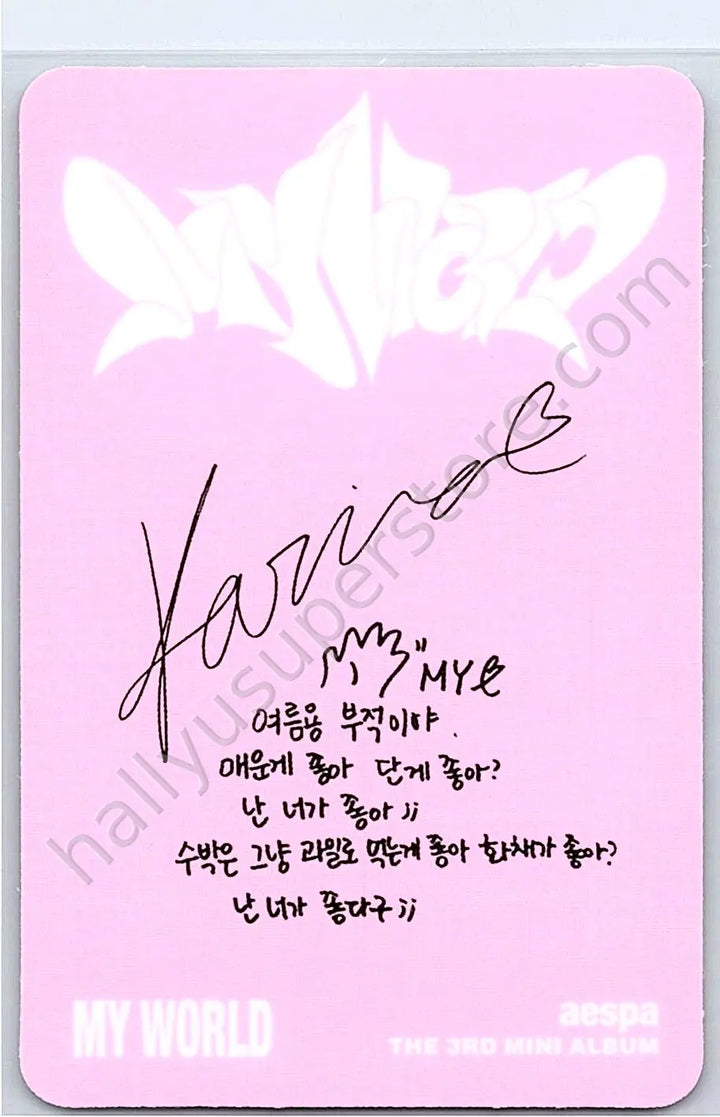 MY WORLD
Karina
"MY
여름용 부적이야.
매운게 좋아 단게 좋아?
난 너가 좋아 ;;
수박은 그냥 과일로 먹는게 좋아 화채가 좋아?
난 너가 좋다구 ;;
hallyusuperstore.com
MY WORLD
aespa
THE 3RD MINI ALBUM